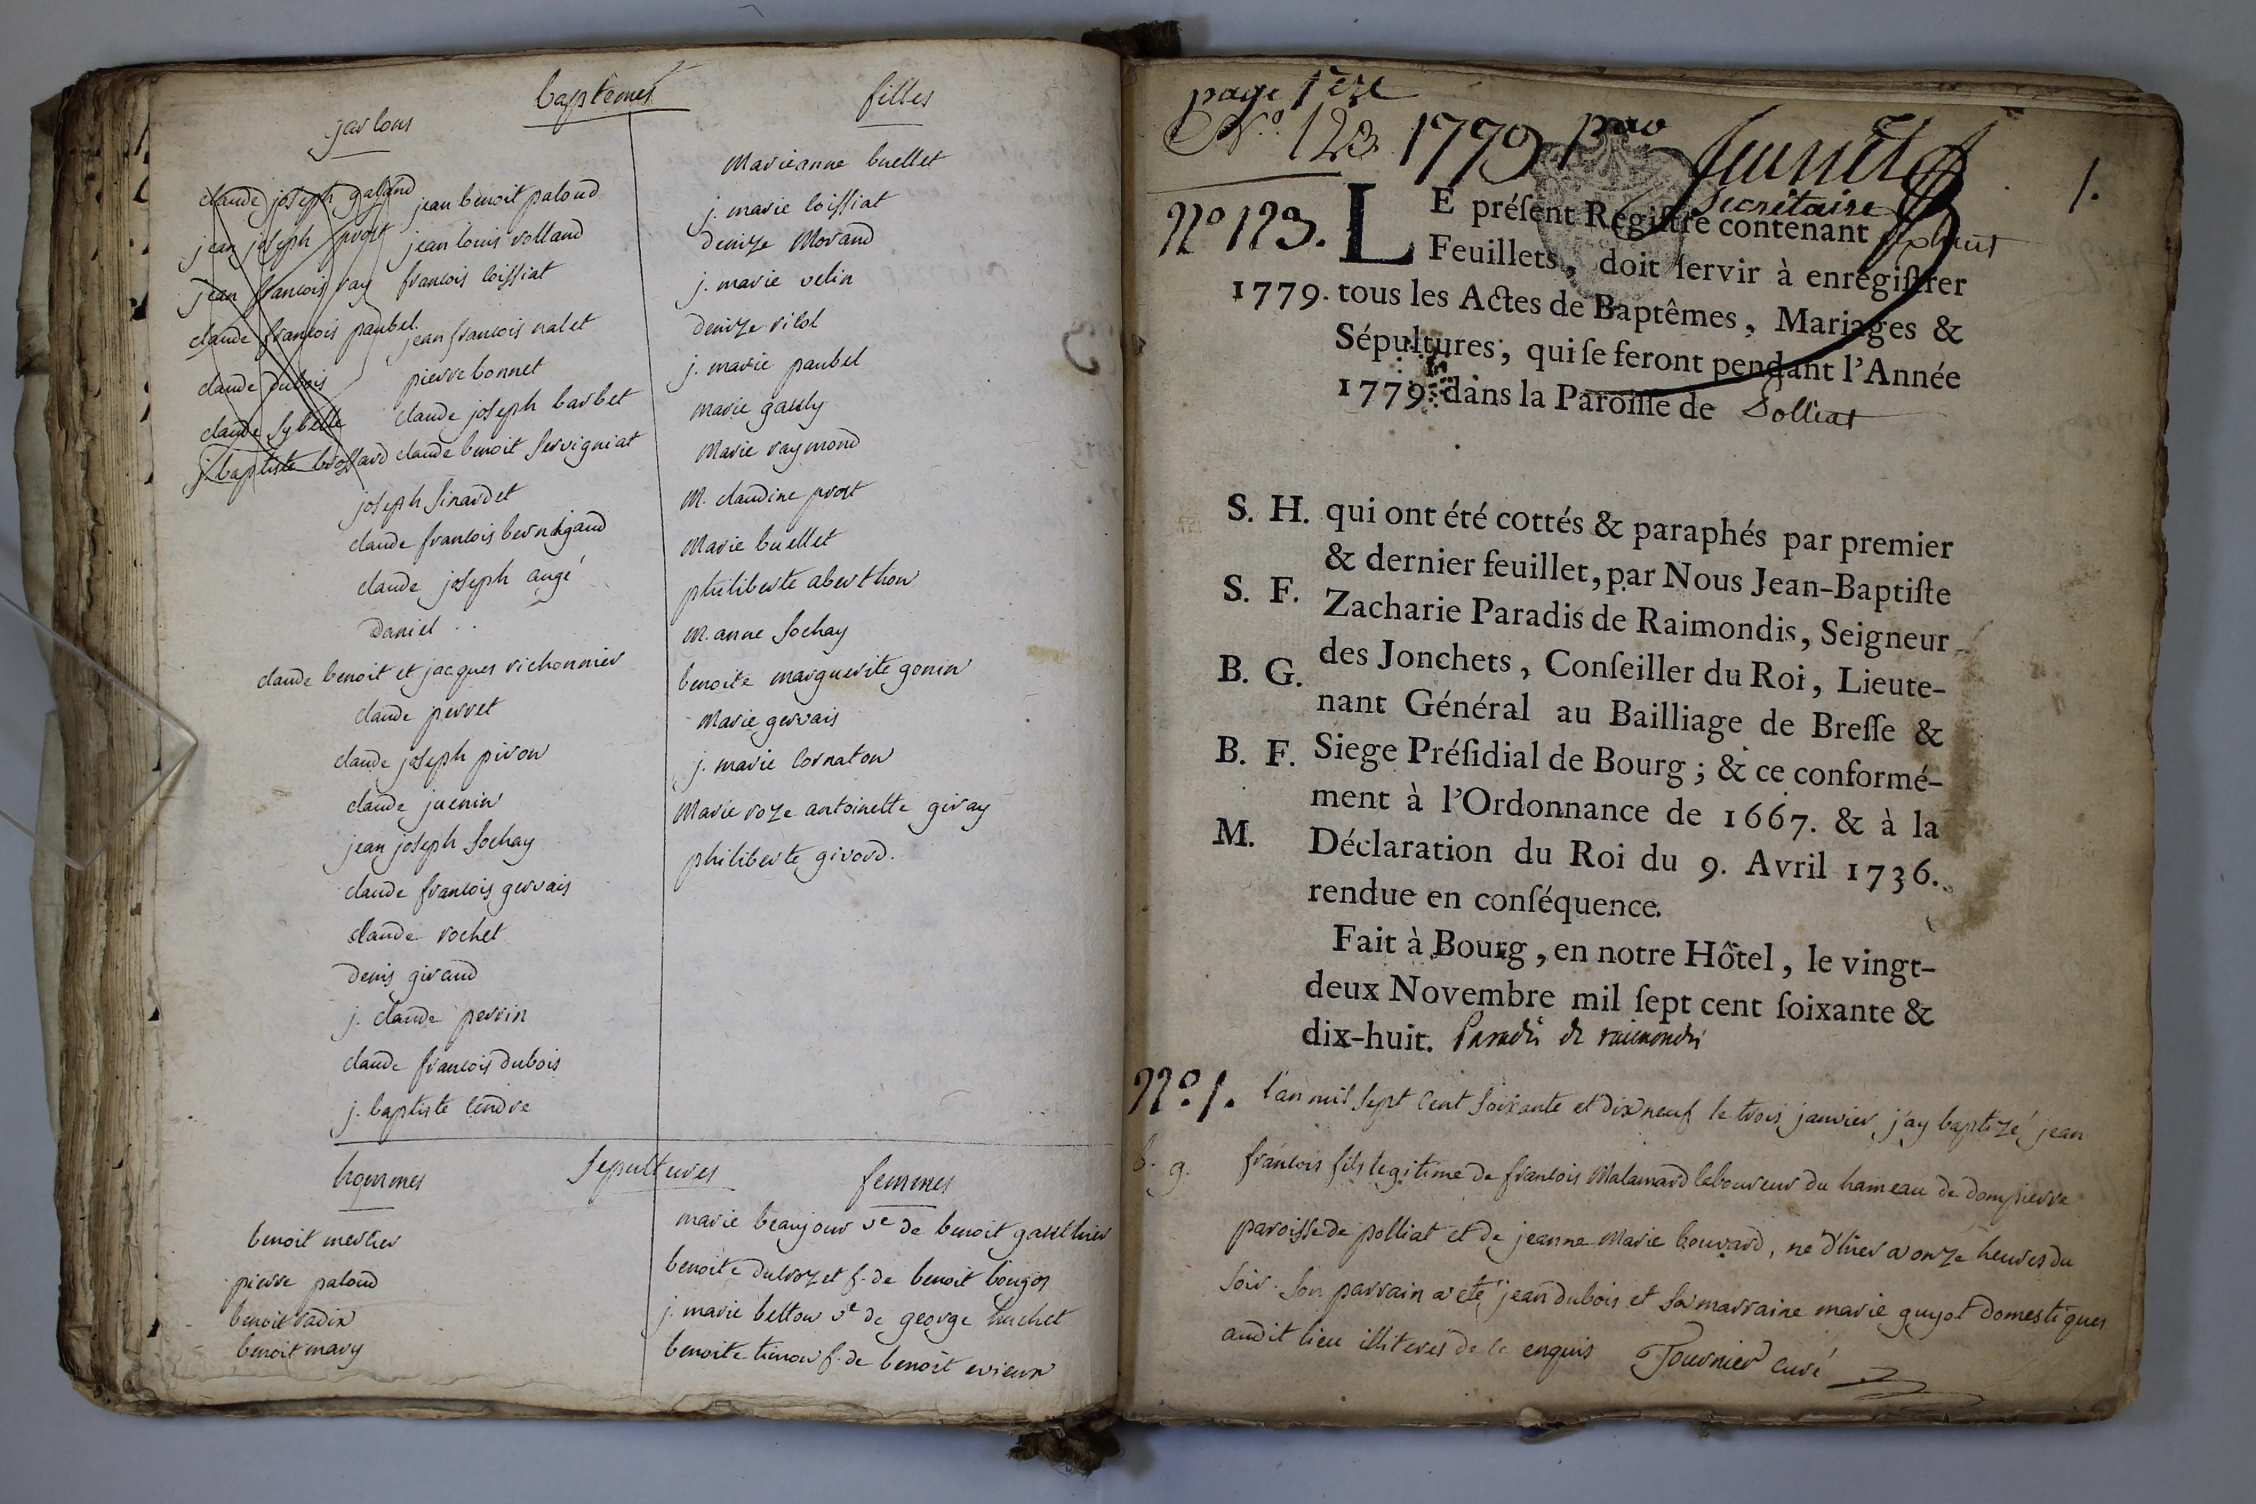 baptemes
garçons
filles
claude joseph galand
jean joseph prost
jean francois ray
claude francois paubel
claude dubois
claude sybelle
j. baptiste brossard
jean benoit paloud
jean louis rolland
francois loissiat
jean francois nalet
pierre bonnet
claude joseph barbet
claude benoit servigniat
joseph sinardet
claude francois bernigaud
claude joseph augé
daniel . .
claude benoit et jacques richonnier
claude perret
claude joseph piron
claude juenin
jean joseph sochay
claude francois gervais
claude rochet
denis giraud
j. claude perrin
claude francois dubois
j. baptiste cendre
Marieanne buellet
j. marie loissiat
denize Morand
j. marie velin
denize vilol
j. marie paubel
marie gautly
Marie raymond
M. claudine prost
Marie buellet
philiberte aberthon
m. anne sochay
benoite marguerite gonin
Marie gervais
j. marie cornaton
Marie roze antoinette giray
philiberte girord.
sepultures
hommes
femmes
benoit mercier
pierre paloud
benoit radix
benoit mary
marie beaujour ve de benoit gauthier
benoite dubrozet f. de benoit bongos
j. marie belton ve de george huchet
benoite tienon f. de benoit evieux
page 1ere
No. 123. 1779. par
Secrétaire
1.
No 123. LE préſent Regiſtre contenant
Feuillets, doit ſervir à enrégiſtrer
1779. tous les Actes de Baptêmes, Mariages &
Sépultures, qui ſe feront pendant l'Année
1779. dans la Paroiſſe de Polliat
S. H. qui ont été cottés & paraphés par premier
& dernier feuillet, par Nous Jean-Baptiſte
S. F. Zacharie Paradis de Raimondis, Seigneur
des Jonchets, Conſeiller du Roi, Lieute-
B. G. nant Général au Bailliage de Breſſe &
B. F. Siege Préſidial de Bourg ; & ce conformé-
ment à l'Ordonnance de 1667. & à la
M. Déclaration du Roi du 9. Avril 1736.
rendue en conſéquence.
Fait à Bourg, en notre Hôtel, le vingt-
deux Novembre mil ſept cent ſoixante &
dix-huit. Paradis de raimondis
No. 1. l'an mil sept cent soixante et dix neuf le trois janvier j'ay baptizé jean
b. g. francois fils legitime de francois Malamard laboureur du hameau de dompierre
paroisse de polliat et de jeanne Marie bouvard, ne d'hier a onze heures du
soir. son parrain a été jean dubois et sa marraine marie guyot domestiques
audit lieu illiteres de ce enquis Tournier curé